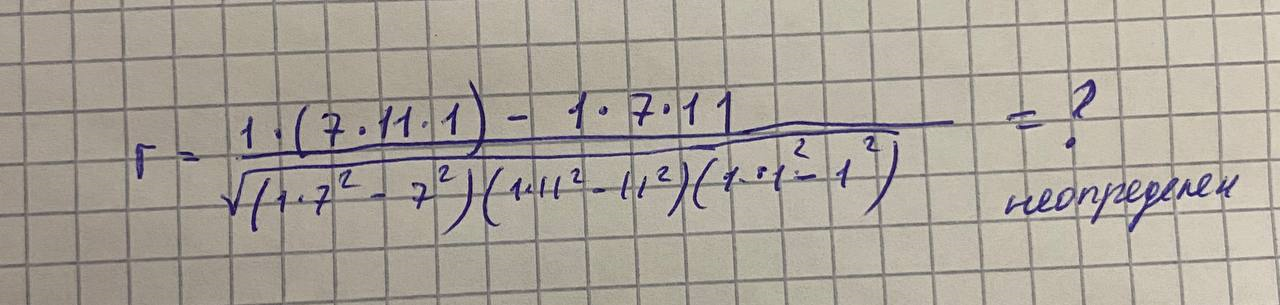 r = 1·(7·11·1) - 1·7·11 / √(1·7² - 7²)(1·11² - 11²)(1·1² - 1²) = ?
неопределен